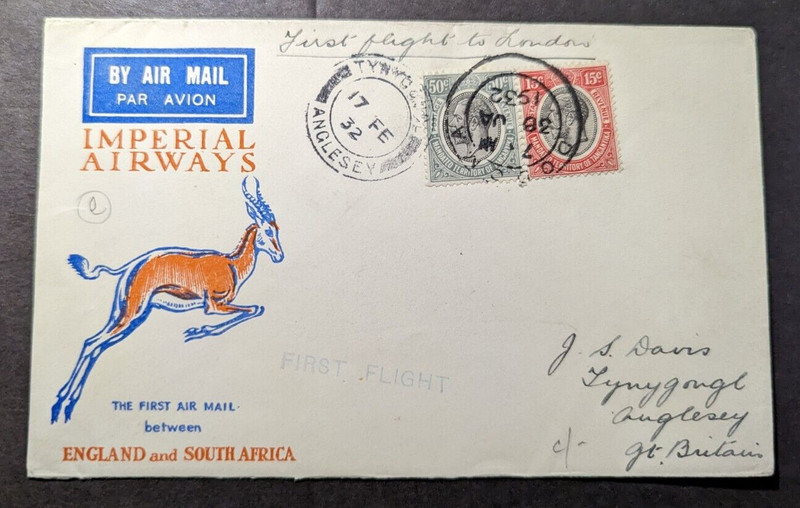 First flight to London
BY AIR MAIL
PAR AVION
IMPERIAL
AIRWAYS
17 FE
32
ANGLESEY
50c
15c
15c
REVENUE
1932
30 JA
AM
e
FIRST FLIGHT
J. S. Davis
Tynygongl
Anglesey
c/-
Gt. Britain
THE FIRST AIR MAIL
between
ENGLAND and SOUTH AFRICA